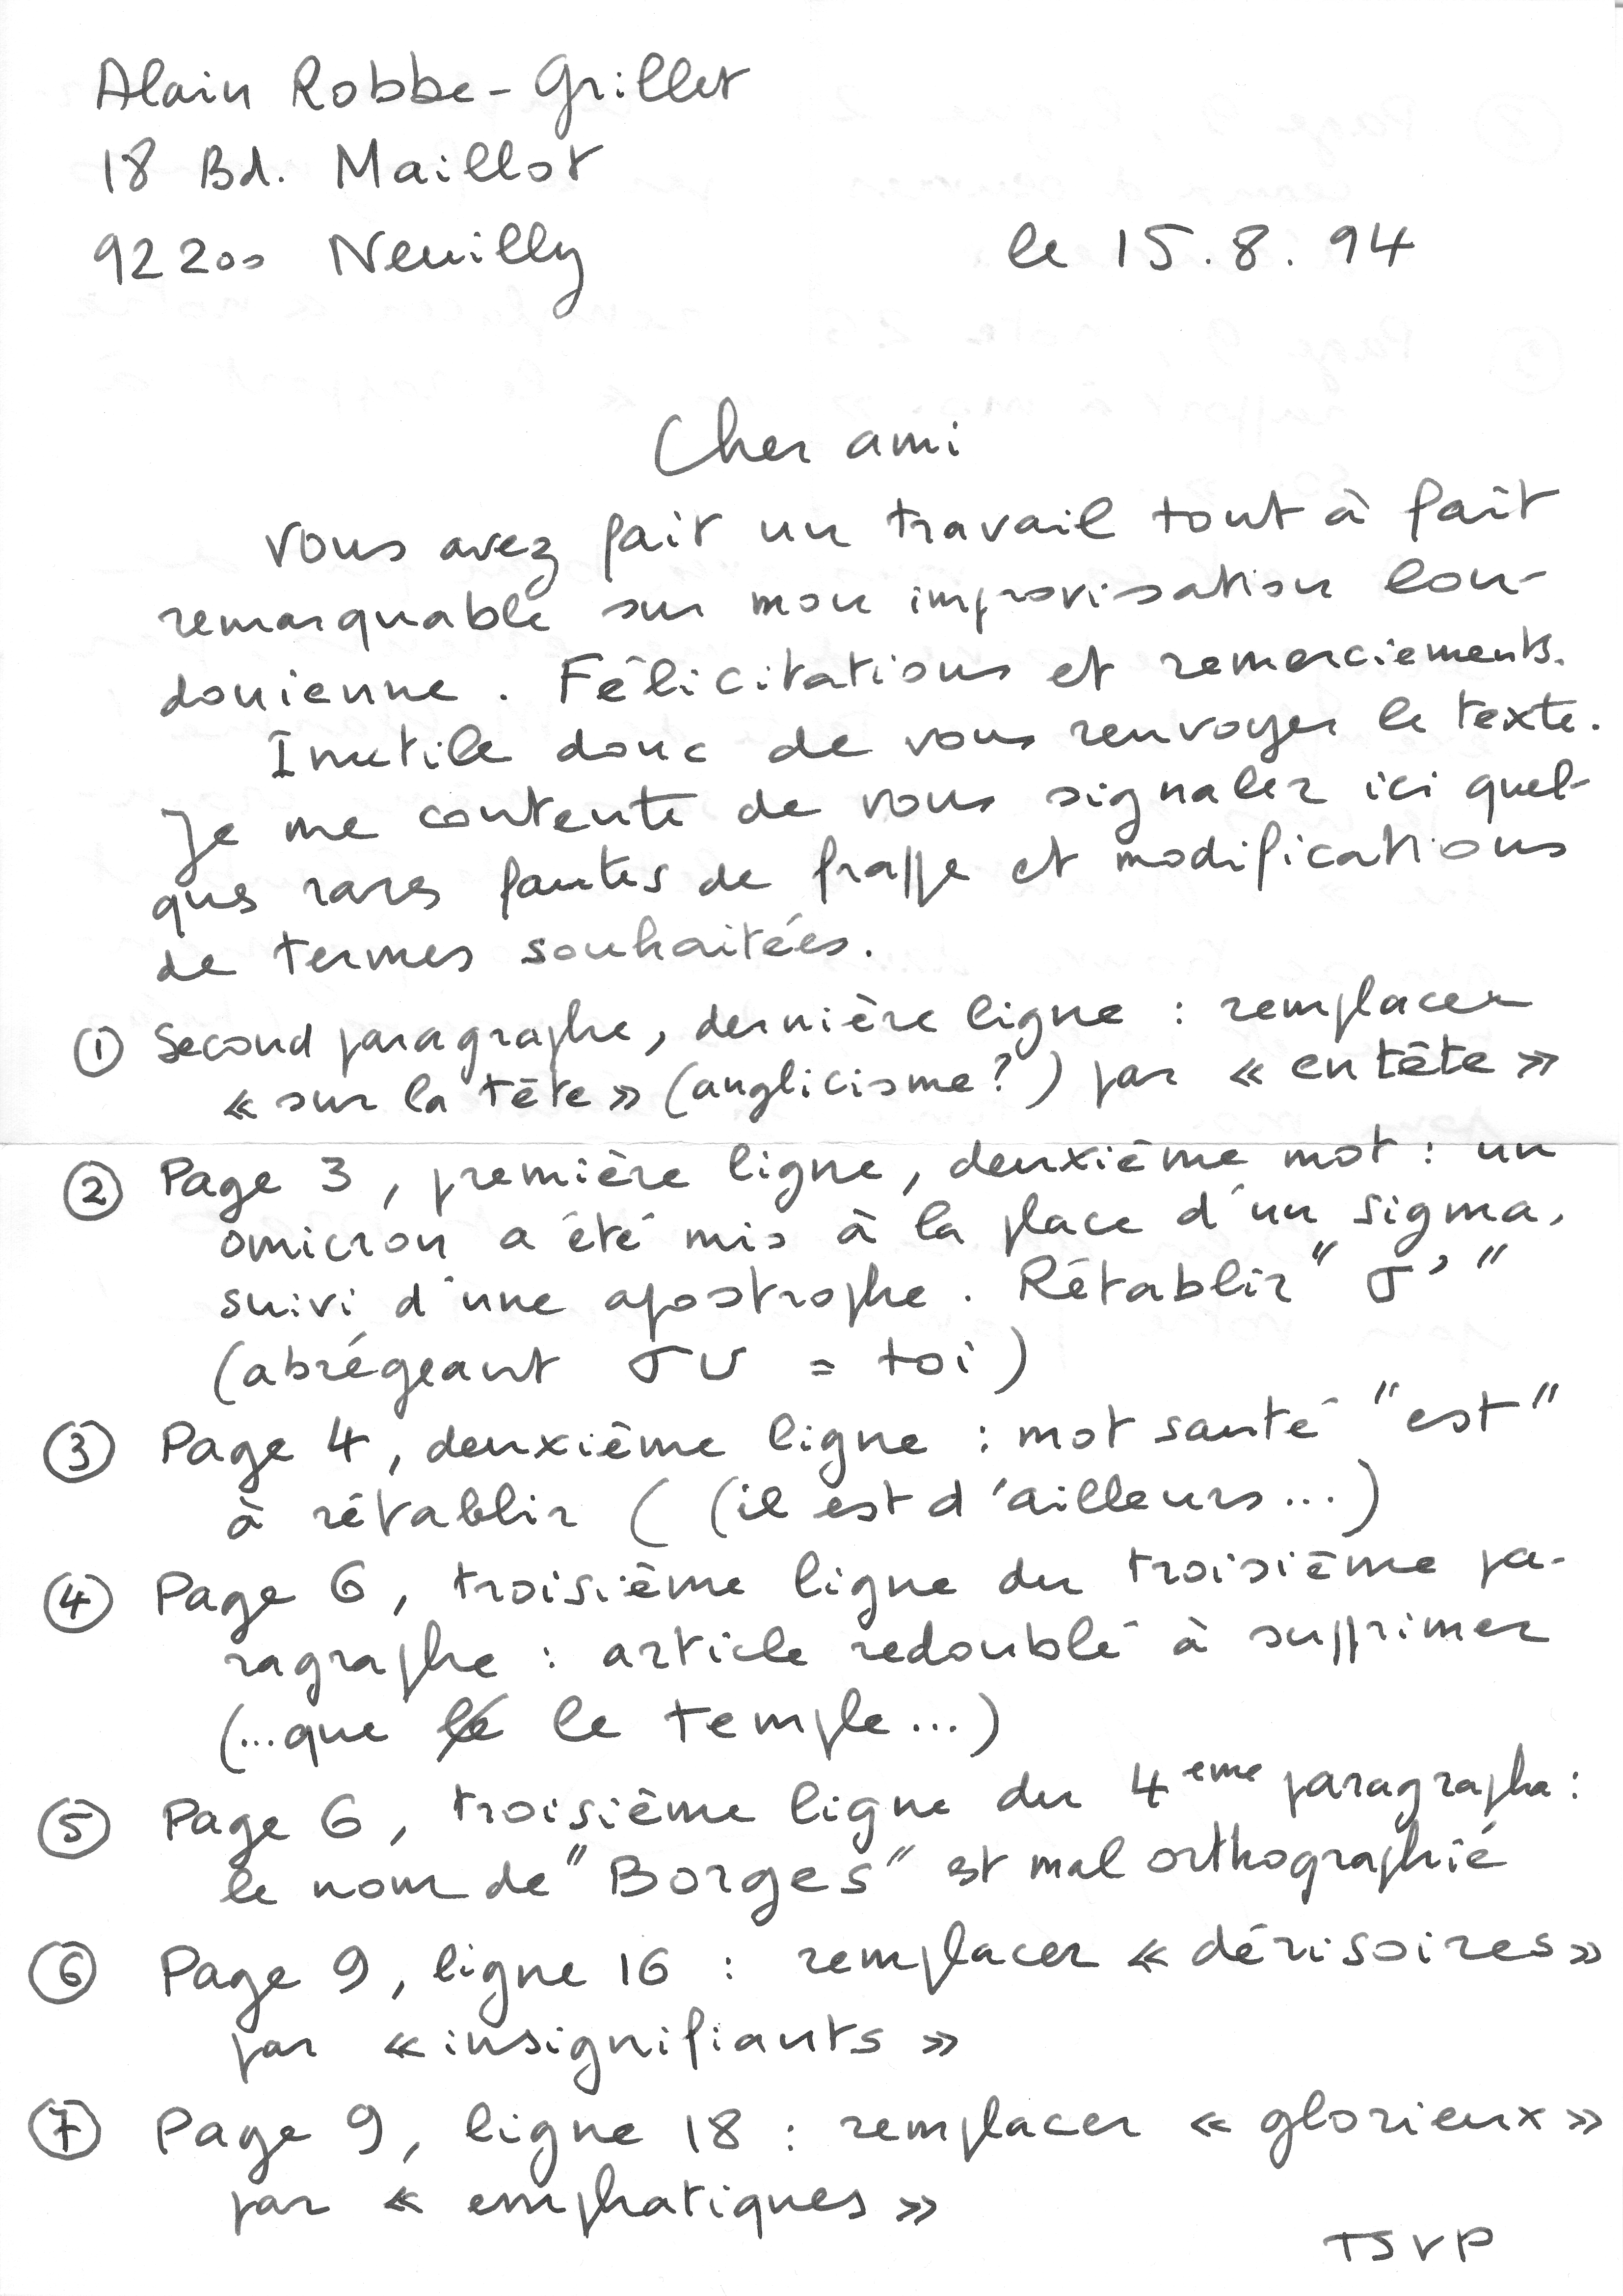 Alain Robbe-Grillet
18 Bd. Maillot
92200 Neuilly
le 15.8.94
Cher ami
Vous avez fait un travail tout à fait
remarquable sur mon improvisation lon-
donienne. Félicitations et remerciements.
Inutile donc de vous renvoyer le texte.
Je me contente de vous signaler ici quel-
ques rares fautes de frappe et modifications
de termes souhaitées.
① Second paragraphe, dernière ligne : remplacer
« sur la tête » (anglicisme?) par « en tête »
② Page 3, première ligne, deuxième mot : un
omicron a été mis à la place d'un sigma,
suivi d'une apostrophe. Rétablir " σ' "
(abrégeant συ = toi)
③ Page 4, deuxième ligne : mot sauté "est"
à rétablir ( (il est d'ailleurs...)
④ Page 6, troisième ligne du troisième pa-
ragraphe : article redoublé à supprimer
(...que le le temple...)
⑤ Page 6, troisième ligne du 4eme paragraphe :
le nom de "Borges" est mal orthographié
⑥ Page 9, ligne 16 : remplacer « dérisoires »
par « insignifiants »
⑦ Page 9, ligne 18 : remplacer « glorieux »
par « emphatiques »
TSVP